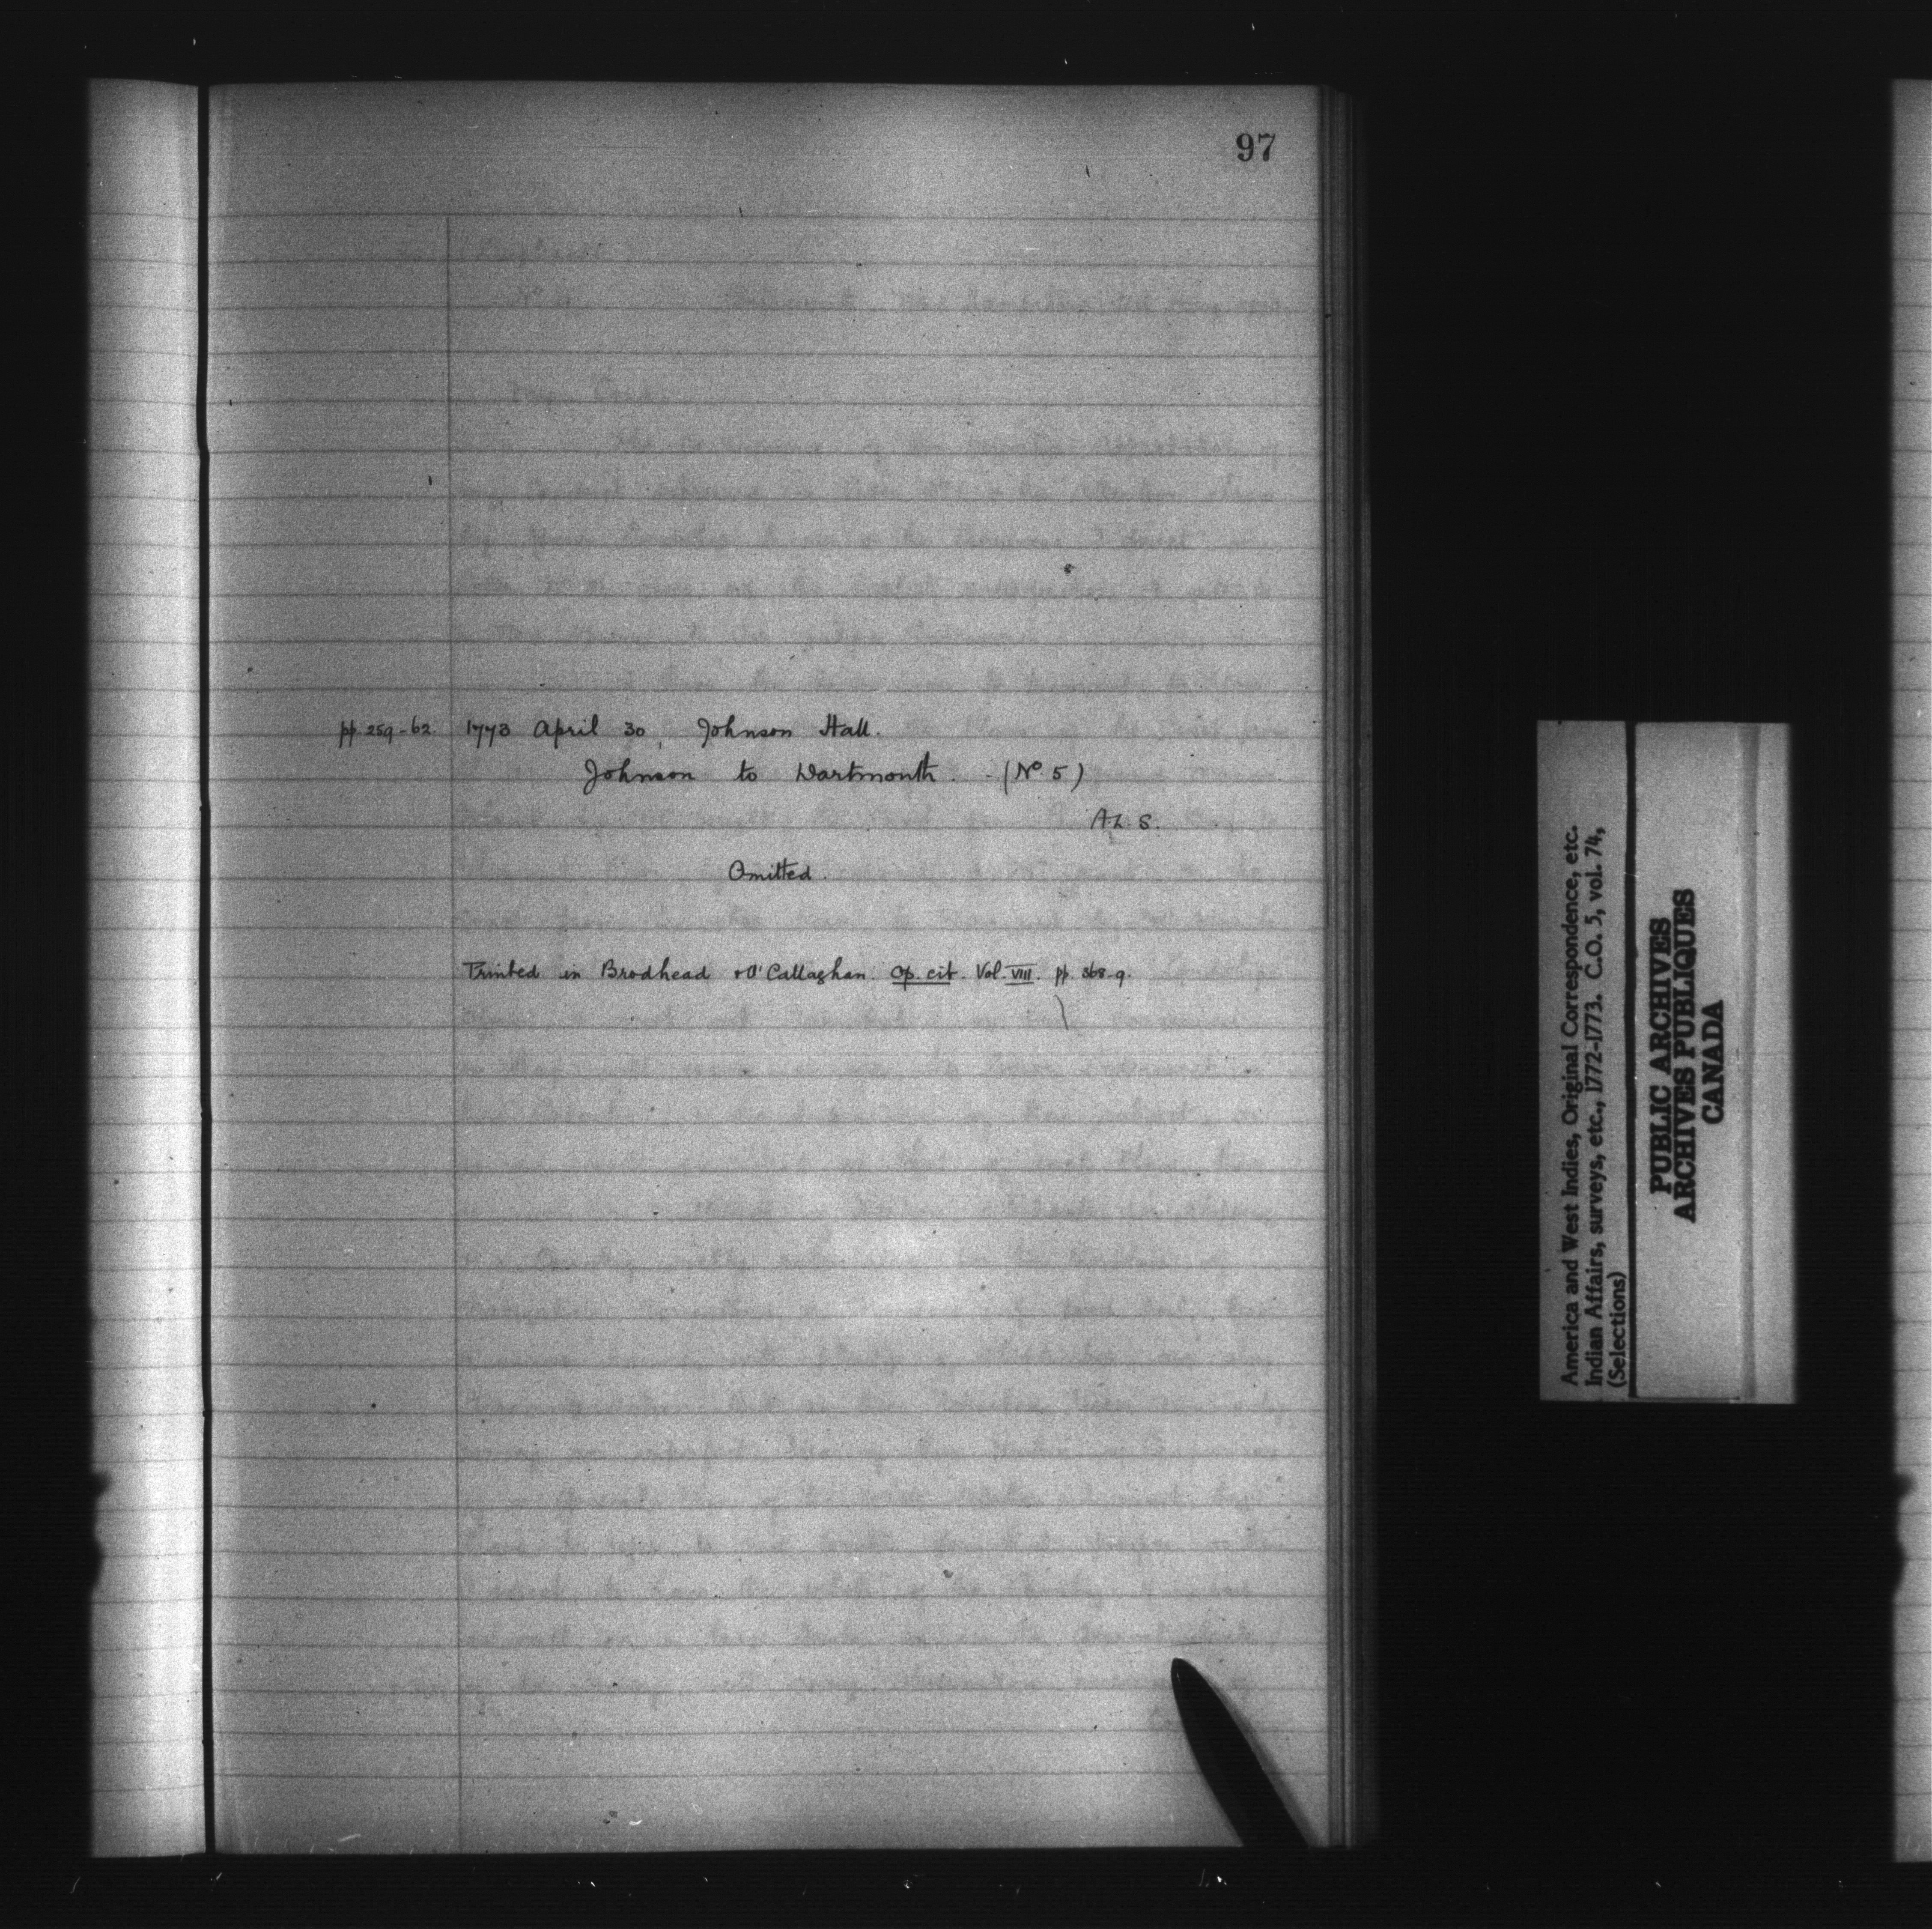 97
pp. 259-62. 1773 April 30, Johnson Hall.
Johnson to Dartmouth. (No. 5)
A.L.S.
Omitted.
Printed in Brodhead & O'Callaghan. Op. cit. Vol. VIII. pp. 368-9.
America and West Indies, Original Correspondence, etc.
Indian Affairs, surveys, etc., 1772-1773. C.O. 5, vol. 74,
(Selections)
PUBLIC ARCHIVES
ARCHIVES PUBLIQUES
CANADA